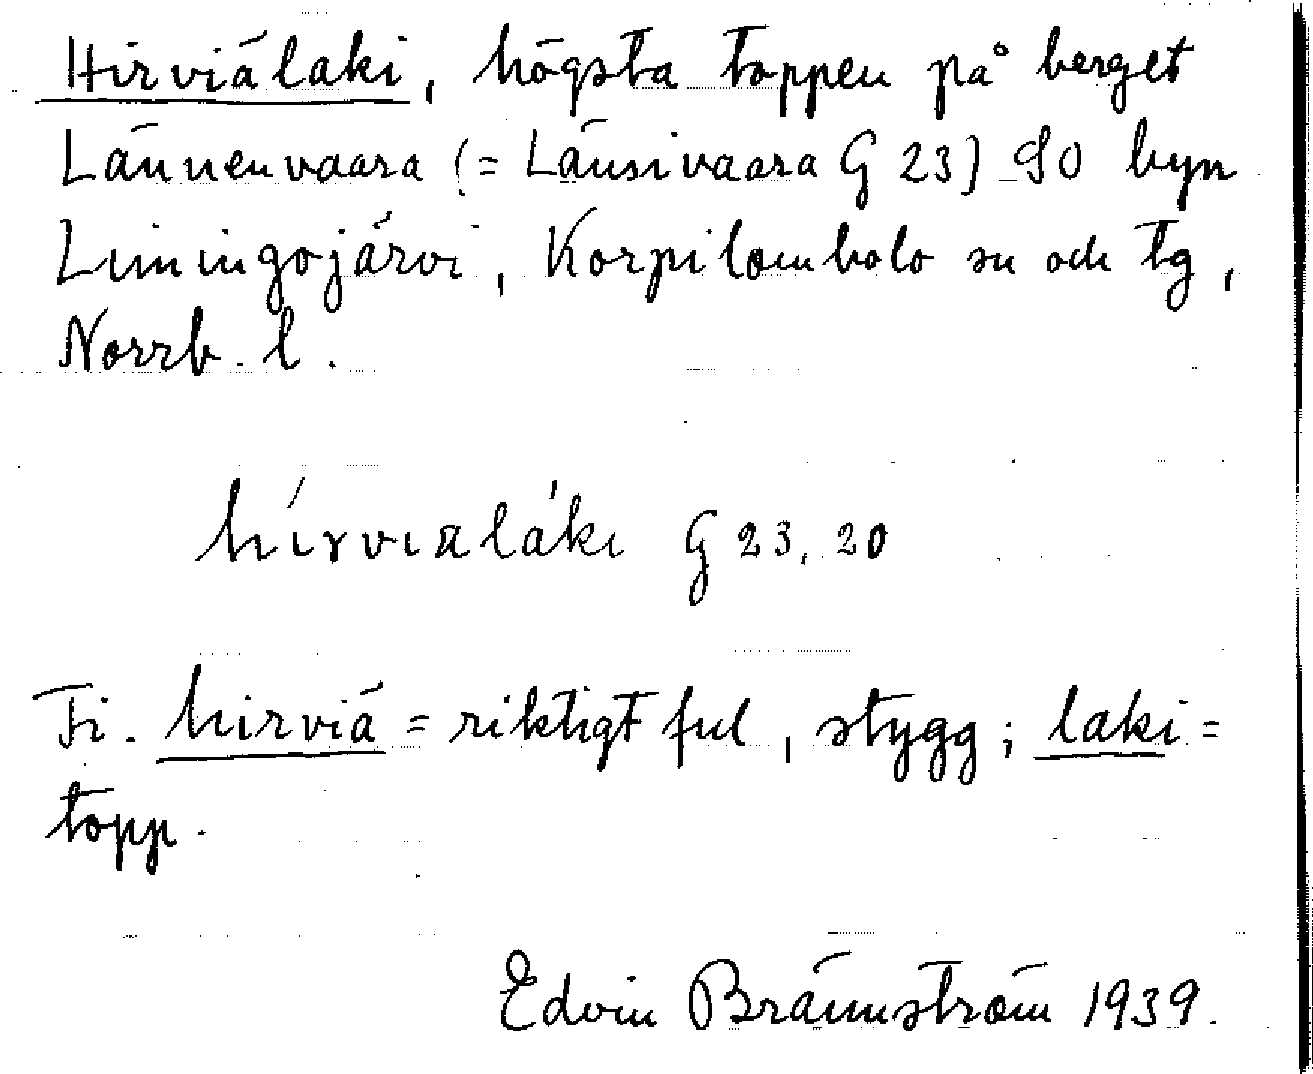 Hirviälaki, högsta toppen på berget
Lännenvaara (= Länsivaara G 23) SO byn
Limingojärvi, Korpilombolo sn och tg,
Norrb. l.
hírvıäláki G 23, 20
Fi. hirviä = riktigt ful, stygg; laki =
topp.
Edvin Brännström 1939.